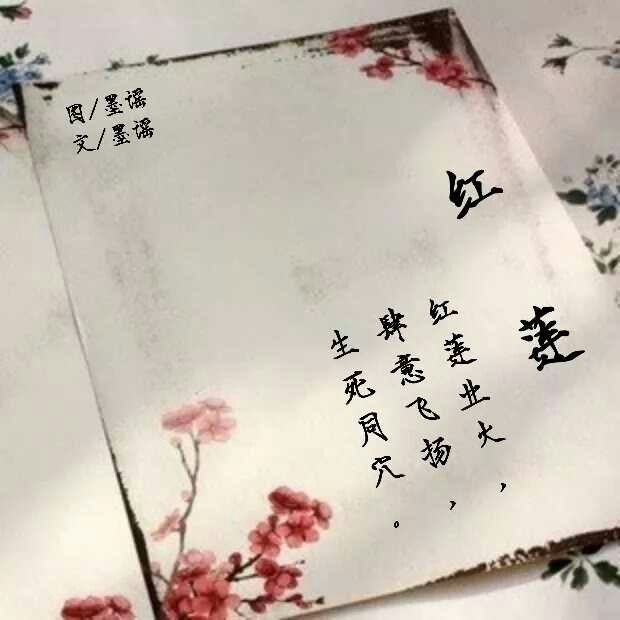 图/墨谣
文/墨谣
红莲
红莲业火，
肆意飞扬，
生死同穴。